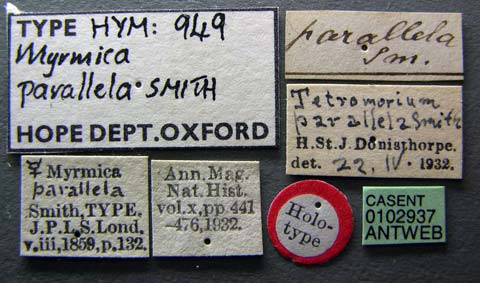 TYPE HYM: 949
Myrmica
parallela. SMITH
HOPE DEPT. OXFORD
parallela
Sm.
Tetromorium
parallela Smith
H. St. J. Donisthorpe.
det. 22. IV. 1932.
☿ Myrmica
parallela
Smith, TYPE.
J.P.L.S. Lond.
v.iii, 1859, p.132.
Ann. Mag.
Nat. Hist.
vol.x, pp. 441
-476, 1932.
Holo-
type
CASENT
0102937
ANTWEB